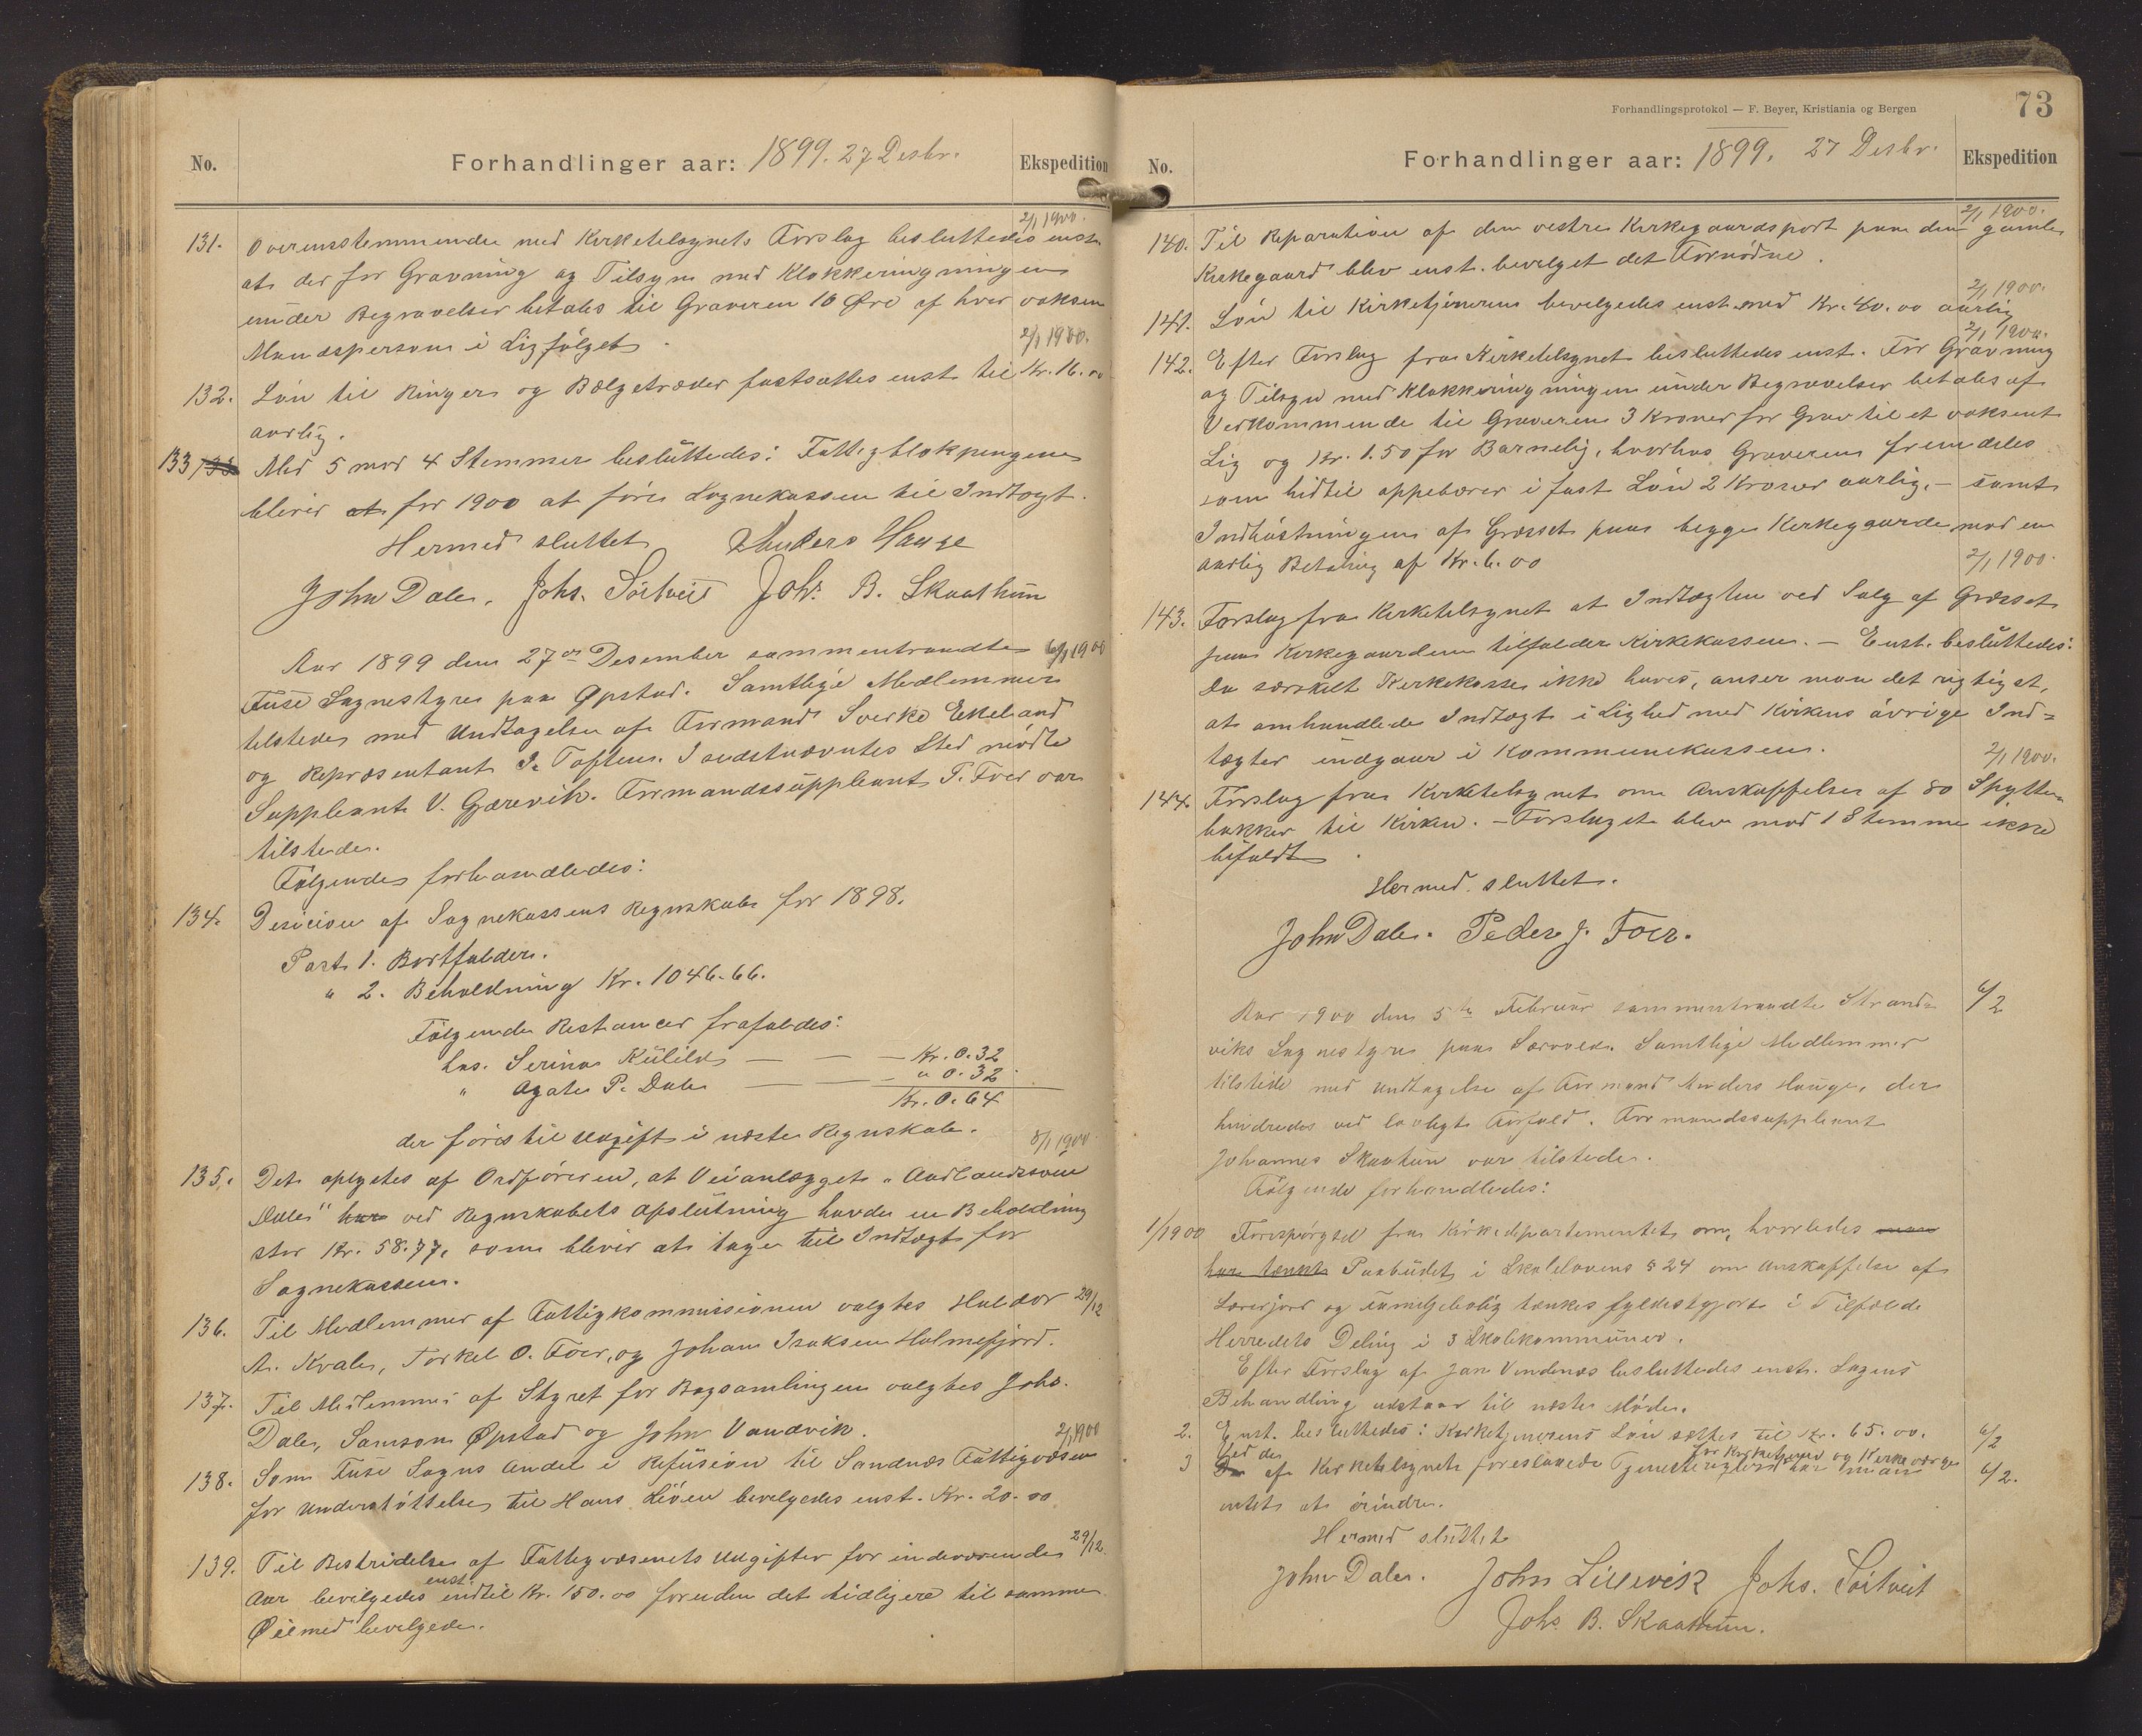 No.
Forhandlinger aar: 1899. 27 Desbr.
Ekspedition
2/1 1900.
131. Overensstemmende med Kirketilsynets Forslag besluttedes enst.
at der for Gravning og Tilsyn med Klokkeringningen
under Begravelser betales til Graveren 10 Øre af hver voksen
Mandsperson i Ligfølget.
2/1 1900.
132. Løn til Ringer og Bælgetræder fastsattes enst. til Kr. 16.00
aarlig.
133 Med 5 mod 4 Stemmer besluttedes: Fattigblokpengene
bliver at for 1900 at føre Sognekassen til Indtægt.
Hermed sluttet Anders Hauge
John Dale. Johs. Söitveit Johs. B. Skaathun
Aar 1899 den 27de Desember sammentraadte
Fuse Sognestyre paa Øpstad. Samtlige Medlemmer
tilstede med Undtagelse af Formand Sverke Ekeland
og Repræsentant I. Toften. I sidstnævntes Sted mødte
Suppleant V. Gjærevik. Formandssuppleant P. Foer var
tilstede.
Følgende forhandledes:
134. Desision af Sognekassens Regnskab for 1898.
Post 1. Bortfalder.
" 2. Beholdning Kr. 1046.66.
Følgende Restancer frafaldes:
hos. Serina Kulild — — — Kr. 0.32
" Agate P. Dale — — — " 0.32
Kr. 0.64
der føres til Udgift i næste Regnskab.
8/1 1900.
135. Det oplystes af Ordføreren, at Veianlægget "Aadlandssven
Dale" har ved Regnskabets Afslutning havde en Beholdning
stor Kr. 58.77, som bliver at tage til Indtægt for
Sognekassen.
136. Til Medlemmer af Fattigkommissionen valgtes Haldor
29/12
A. Kvale, Torkel O. Foer, og Johan Isaksen Holmefjord.
137. Til Medlemmer af Styret for Bogsamlingen valgtes Johs.
Dale, Samson Øpstad og John Vandvik.
2/1 1900
138. Som Fuse Sogns Andel i Refusion til Sandnæs Fattigvæsen
for Understøttelse til Hans Liöen bevilgedes enst. Kr. 20.00
29/12.
139. Til Bestridelse af Fattigvæsenets Udgifter for indeværende
Aar bevilgedes enst. indtil Kr. 150.00 foruden det tidligere til samme
Øiemed bevilgede.
Forhandlingsprotokol — F. Beyer, Kristiania og Bergen
73
No.
Forhandlinger aar: 1899. 27 Desbr.
Ekspedition
2/1 1900.
140. Til Reparation af den vestre Kirkegaardsport paa den gamle
Kirkegaard blev enst. bevilget det Fornødne.
2/1 1900.
141. Løn til Kirketjeneren bevilgedes enst. med Kr. 40.00 aarlig
2/1 1900.
142. Efter Forslag fra Kirketilsynet besluttedes enst. For Gravning
og Tilsyn med Klokkeringningen under Begravelser betales af
Vedkommende til Graveren 3 Kroner for Grav til et voksent
Lig og Kr. 1.50 for Barnelig, hvorhos Graveren fremdeles
som hidtil oppebærer i fast Løn 2 Kroner aarlig, - samt
Indhøstningen af Græsset paa begge Kirkegaarde mod en
aarlig Betaling af Kr. 6.00
2/1 1900.
143. Forslag fra Kirketilsynet at Indtægten ved Salg af Græsset
paa Kirkegaarden tilfalder Kirkekassen. - Enst. besluttedes:
Da særskilt Kirkekasse ikke haves, anser man det rigtigst,
at omhandlede Indtægt i Lighed med Kirkens øvrige Ind=
tægter indgaar i Kommunekassen.
2/1 1900.
144. Forslag fra Kirketilsynet om Anskaffelse af 80 Spytte=
bakker til Kirken. - Forslaget blev mod 1 Stemme ikke
bifaldt.
Hermed sluttet.
John Dale. Peder J. Foer.
Aar 1900 den 5te Februar sammentraadte Strand=
6/2
viks Sognestyre paa Sævold. Samtlige Medlemmer
tilstede med Undtagelse af Formand Anders Hauge, der
hindredes ved lovligt Forfald. Formandssuppleant
Johannes Skaathun var tilstede.
Følgende forhandledes:
1/1900 Forespørgsel fra Kirkedepartementet om, hvorledes man
har tænkt Paabudet i Skolelovens § 24 om Anskaffelse af
Lærerjord og Familjebolig tænkes fyldestgjort i Tilfælde
Herredets Deling i 3 Skolekommuner.
Efter Forslag af Jan Vindenæs besluttedes enst. Sagens
Behandling udstaar til næste Møde.
2. Enst. besluttedes: Kirketjenerens Løn sættes til Kr. 65.00.
6/2
3 Ved de af Kirketilsynet foreslaaede Tjenestereglement for Kirketjener og Kirkeværge har man
6/2.
intet at erindre.
Hermed sluttet
John Dale. John Lillevik Johs. Söitveit
Johs. B. Skaathun.